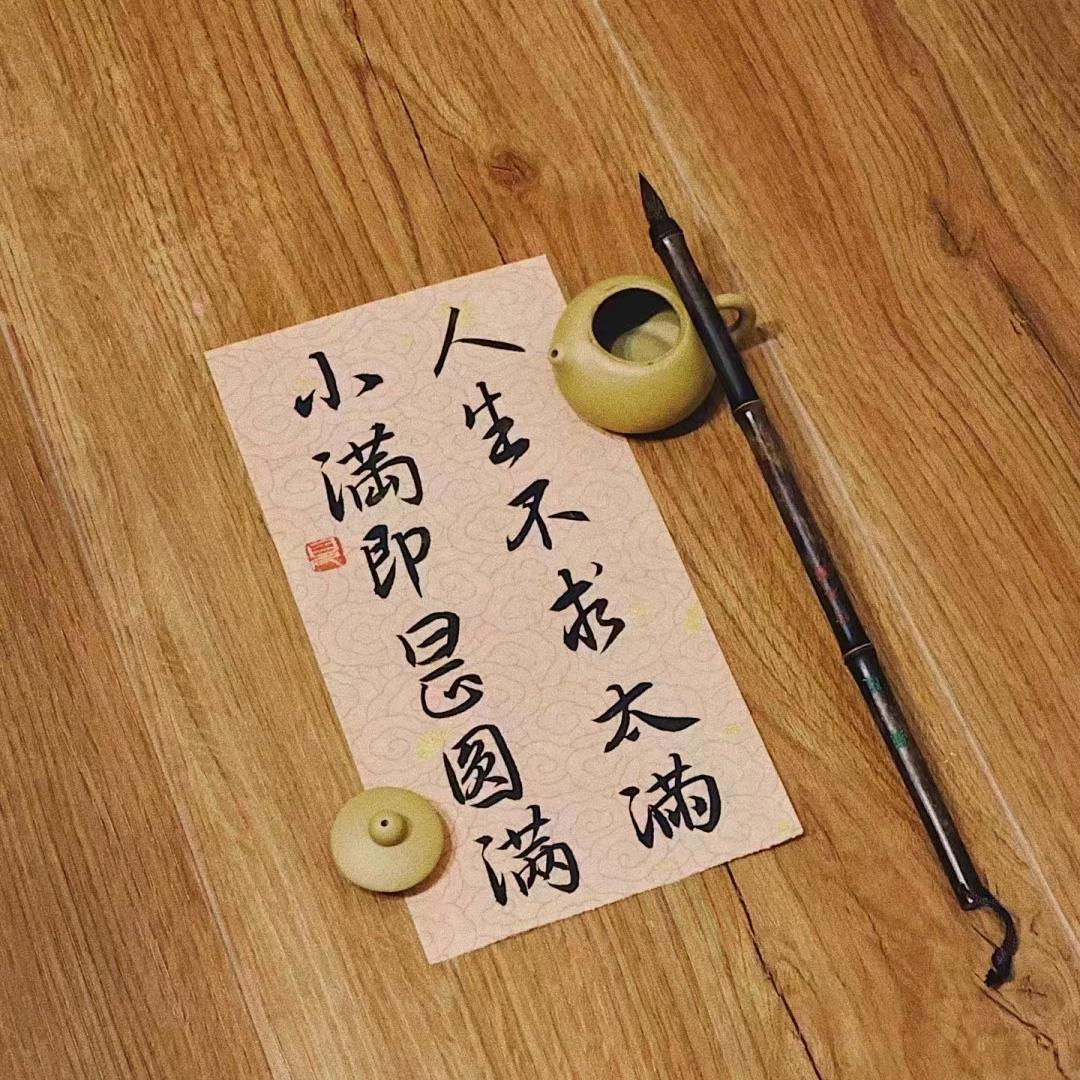 人生不求太满
小满即是圆满